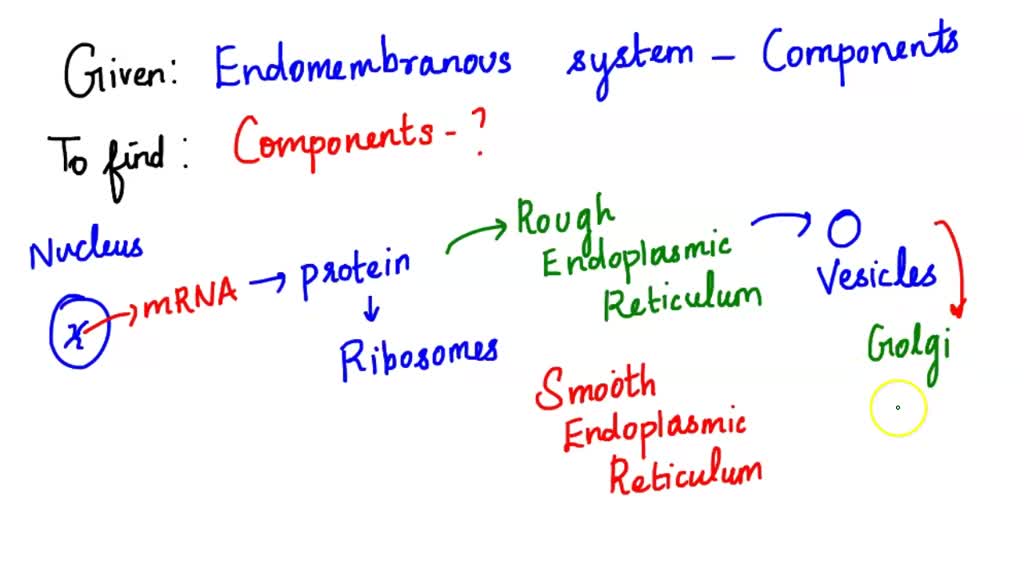 Given: Endomembranous system - Components
To find: Components - ?
Nucleus
mRNA
protein
Ribosomes
Rough
Endoplasmic
Reticulum
Vesicles
Golgi
Smooth
Endoplasmic
Reticulum